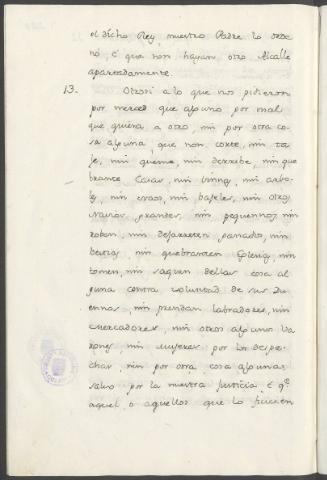 el dicho Rey, nuestro Padre lo orde
nó, é que non hayan otro Alcalle
apartadamente.
13. Otrosi a lo que nos pidieron
por merced que alguno por mal
que quiera a otro, nin por otra co
sa alguna, que non corte, nin ta
je, nin queme, nin derribe, nin que
brante Casas, nin vinnas, nin arbo
les, nin
navios grandes, nin pequennos, nin
roben, nin desjarreten ganado, nin
bestias, nin quebranten Eglesia, nin
tomen, nin saquen dellas cosa al
guna contra voluntad de sus Du
ennos, nin prendan labradores, nin
mercadores, nin otros algunos Va
rones, nin mugeres por los despe
char, nin por otra cosa alguna
salvo por la nuestra Justicia, é qe.
aquel, o aquellos que lo ficiesen